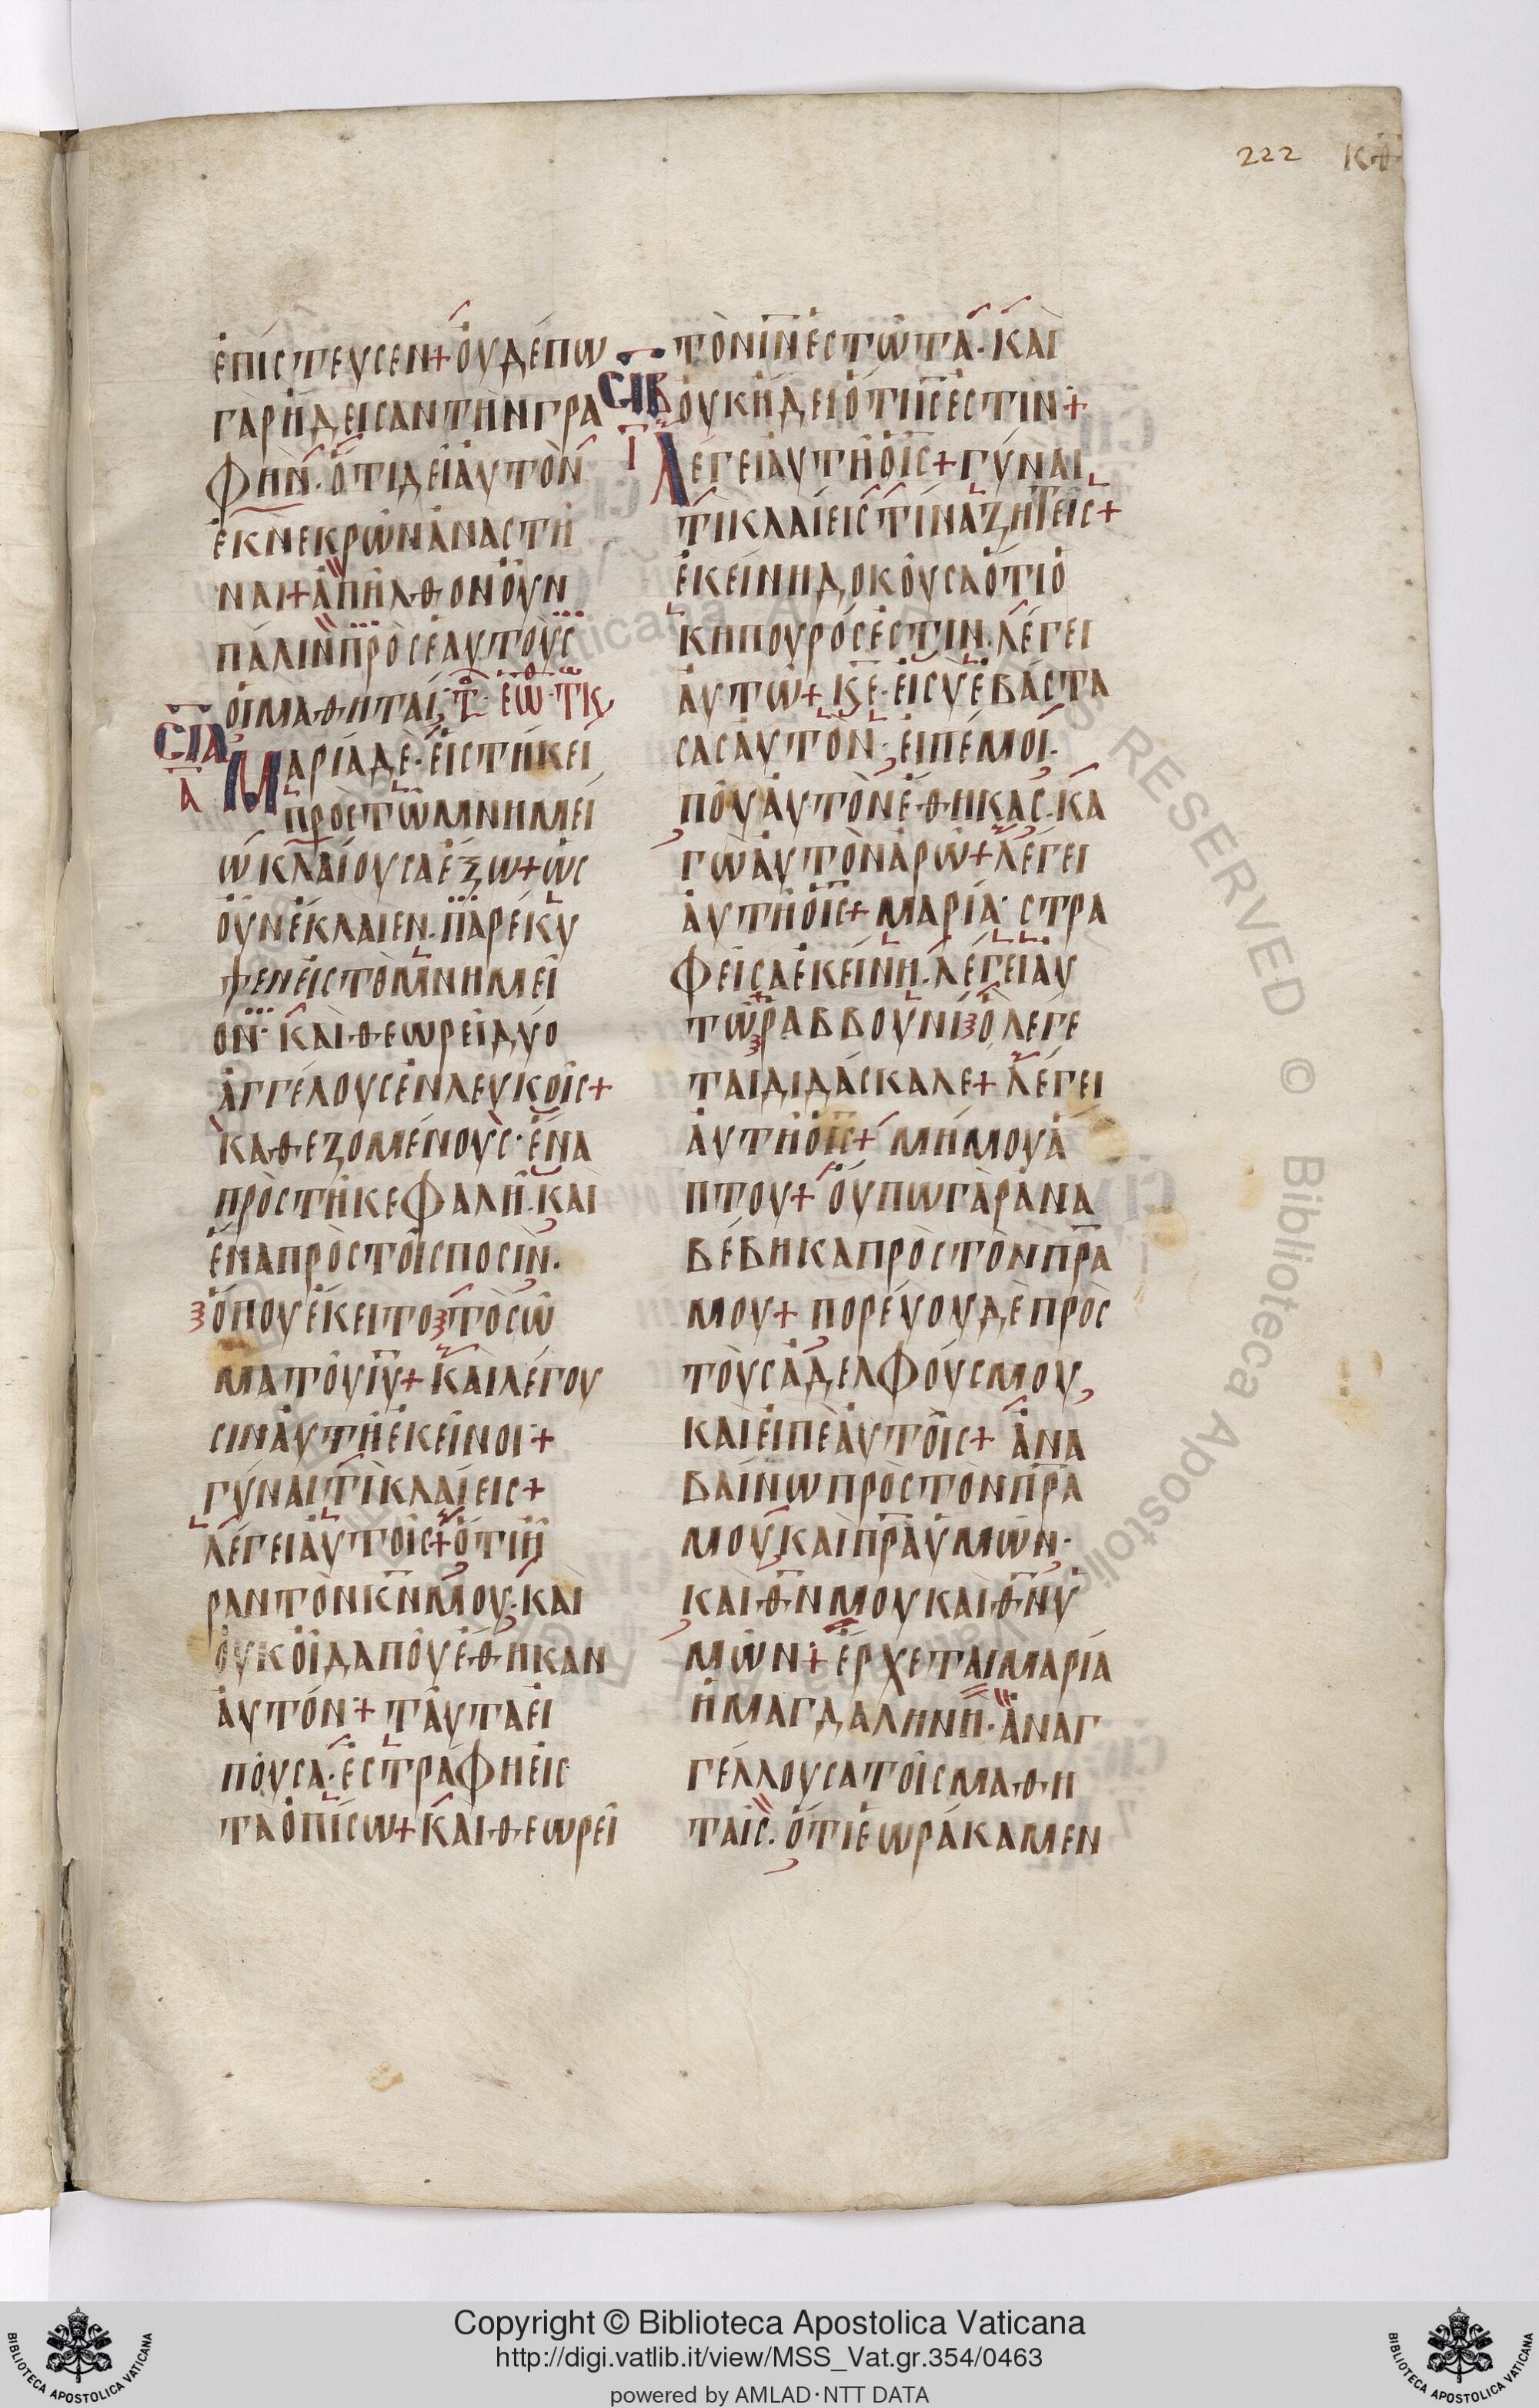 222 κθ
ἐπίστευσεν+ὀυδέπω
γὰρἤδεισαντὴνγρα
φὴν·ὅτιδεῖἀυτὸν
ἐκνεκρῶνἀναστῆ
ναι+ἀπῆλθονοὖν
πάλινπρὸςἑαυτοὺς
ὁιμαθηταί·
ΣΙΑ
Α
Μαρίαδὲ·ἑιστήκει
πρὸςτῶμνημεί
ωκλαίουσαἔξω+ὡς
ὀῦνἔκλαιεν·παρέκυ
ψενἐιςτὸμνημεῖ
ον·καὶθεωρεῖδύο
ἀγγέλουςἐνλευκοῖς+
καθεζομένους·ἕνα
πρὸςτῆκεφαλῆ·καὶ
ἕναπρὸςτοῖςποσὶν·
ὅπουἔκειτοτὸσῶ
ματοῦιυ+καὶλέγου
σινἀυτῆἐκεῖνοι+
γύναιτίκλαίεις+
λέγειἀυτοῖς+ὅτιἦ
ραντὸνκνμου·καὶ
ὀυκὀῖδαποῦἔθηκαν
ἀυτόν+ταῦταἐι
ποῦσα·ἐστράφηἐις
τὰὀπίσω+καὶθεωρεῖ
τὸνινἑστῶτα·καὶ
ΣΙΒ
ὀυκἤδειὅτιιςἐστιν+
Ι
Λέγειἀυτῆὁις+γύναι
τίκλαίειςτίναζητεῖς+
ἐκείνηδοκοῦσαὅτιὁ
κηπουρόςἐστιν·λέγει
ἀυτῶ+κε·ἐισυἐβάστα
σαςἀυτὸν·ἐιπέμοι·
ποῦἀυτὸνἔθηκας·κα
γὼἀυτὸνἀρῶ+λέγει
ἀυτῆὁις+μαρία·στρα
φεῖσαἐκείνη·λέγειαυ
τῶραββουνιὃλέγε
ταιδιδάσκαλε+λέγει
ἀυτῆὁις+μήμουἅ
πτου+ὄυπωγὰρἀνα
βέβηκαπρὸςτὸνπρα
μου+πορεύουδὲπρὸς
τοὺςἀδελφούςμου
καὶἐιπὲἀυτοῖς+ἀνα
βαίνωπρὸςτὸνπρα
μουκαὶπραὑμῶν·
καὶθνμουκαὶθνὑ
μῶν+ἔρχεταιμαρία
ἡμαγδαληνὴ·ἀναγ
γέλλουσατοῖςμαθη
ταῖς·ὅτιἑωράκαμεν
Copyright © Biblioteca Apostolica Vaticana
http://digi.vatlib.it/view/MSS_Vat.gr.354/0463
powered by AMLAD·NTT DATA